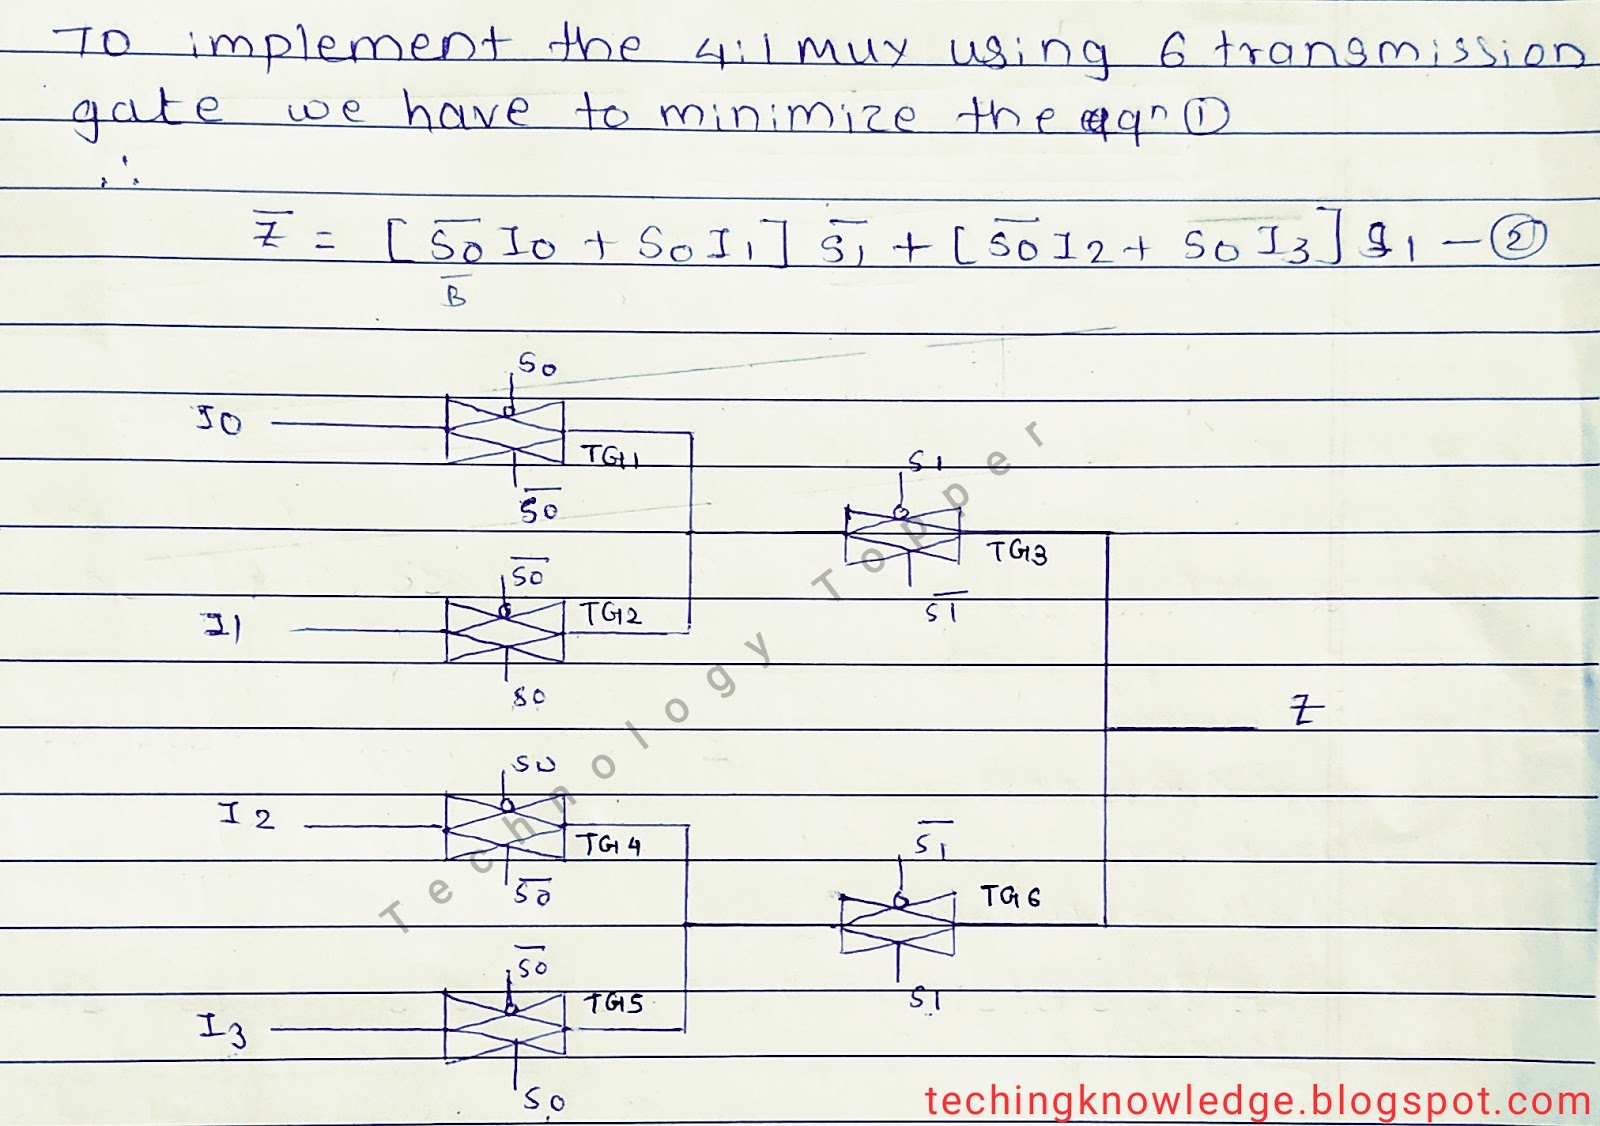 To implement the 4:1 mux using 6 transmission
gate we have to minimize the eqⁿ ①
∴
Z̅ = [S̅0̅ I0 + S0 I1] S̅1̅ + [S̅0̅ I2 + S̅0̅ ̅I̅3̅] S1 — ②
B̅
S0
I0
TG1
S̅0̅
S1
TG3
S̅1̅
S̅0̅
I1
TG2
S0
Z
S0
I2
TG4
S̅0̅
S̅1̅
TG6
S1
S̅0̅
I3
TG5
S0
Technology Topper
techingknowledge.blogspot.com